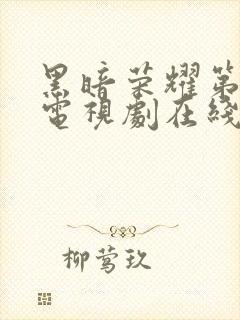 黑暗荣耀第
電視劇在綫
柳莺玖